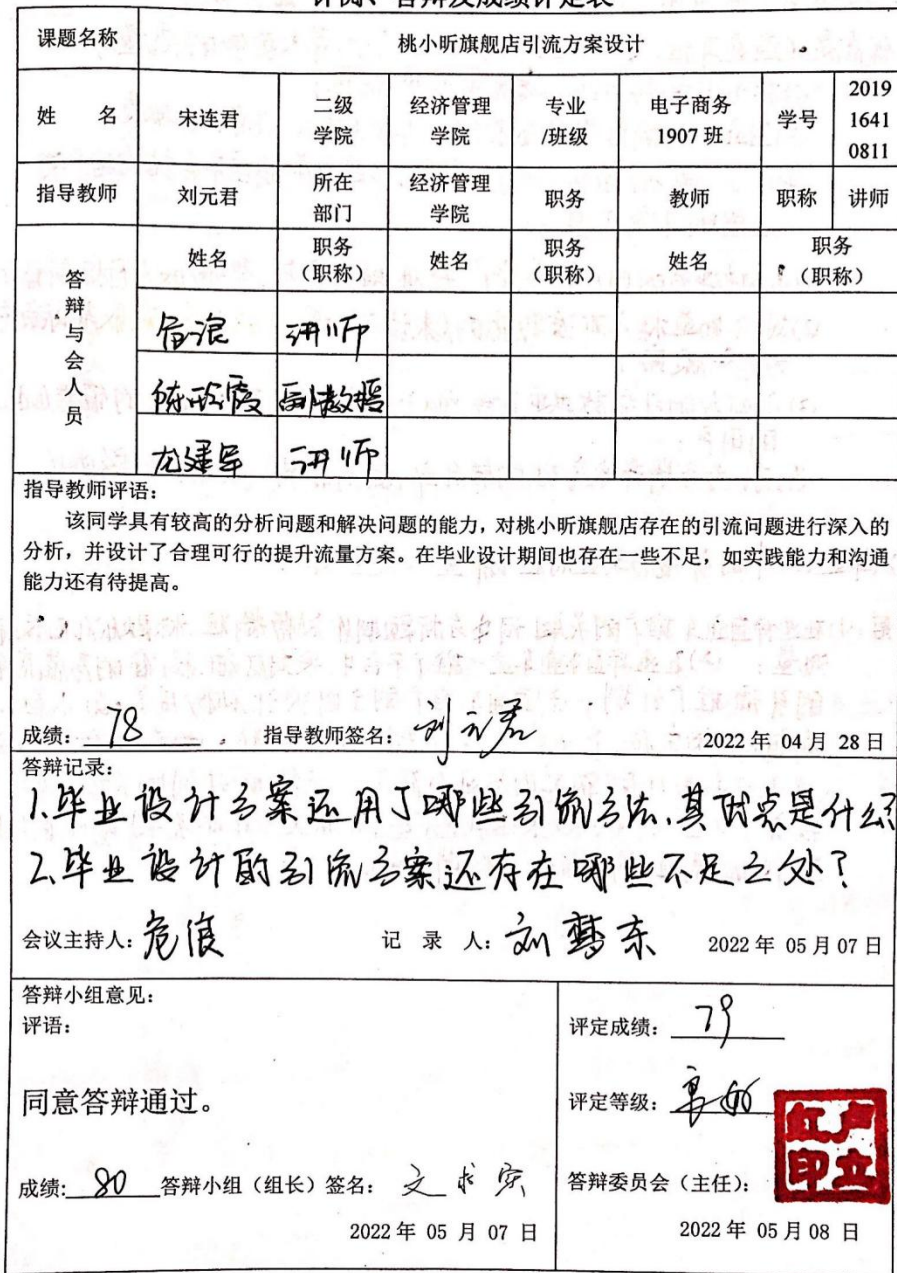 评阅、答辩及成绩评定表
课题名称 桃小昕旗舰店引流方案设计
姓 名 宋连君 二级学院 经济管理学院 专业/班级 电子商务1907班 学号 201916410811
指导教师 刘元君 所在部门 经济管理学院 职务 教师 职称 讲师
答辩与会人员 姓名 职务（职称） 姓名 职务（职称） 姓名 职务（职称）
危浪 讲师
副教授
龙建军 讲师
指导教师评语：
该同学具有较高的分析问题和解决问题的能力，对桃小昕旗舰店存在的引流问题进行深入的
分析，并设计了合理可行的提升流量方案。在毕业设计期间也存在一些不足，如实践能力和沟通
能力还有待提高。
成绩： 78 指导教师签名： 刘元君 2022 年 04 月 28 日
答辩记录：
1.毕业设计方案运用了哪些引流方法,其优点是什么?
2.毕业设计的引流方案还存在哪些不足之处?
会议主持人： 危浪 记 录 人： 刘梦东 2022 年 05 月 07 日
答辩小组意见：
评语：
同意答辩通过。
成绩： 80 答辩小组（组长）签名： 文求实
2022 年 05 月 07 日
评定成绩： 79
评定等级：
答辩委员会（主任）： 卢立红印
2022 年 05 月 08 日